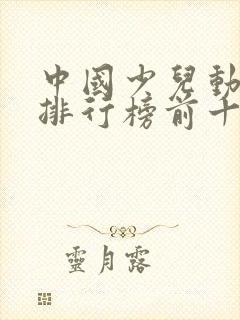 中國少兒動
排行榜前十
靈月露